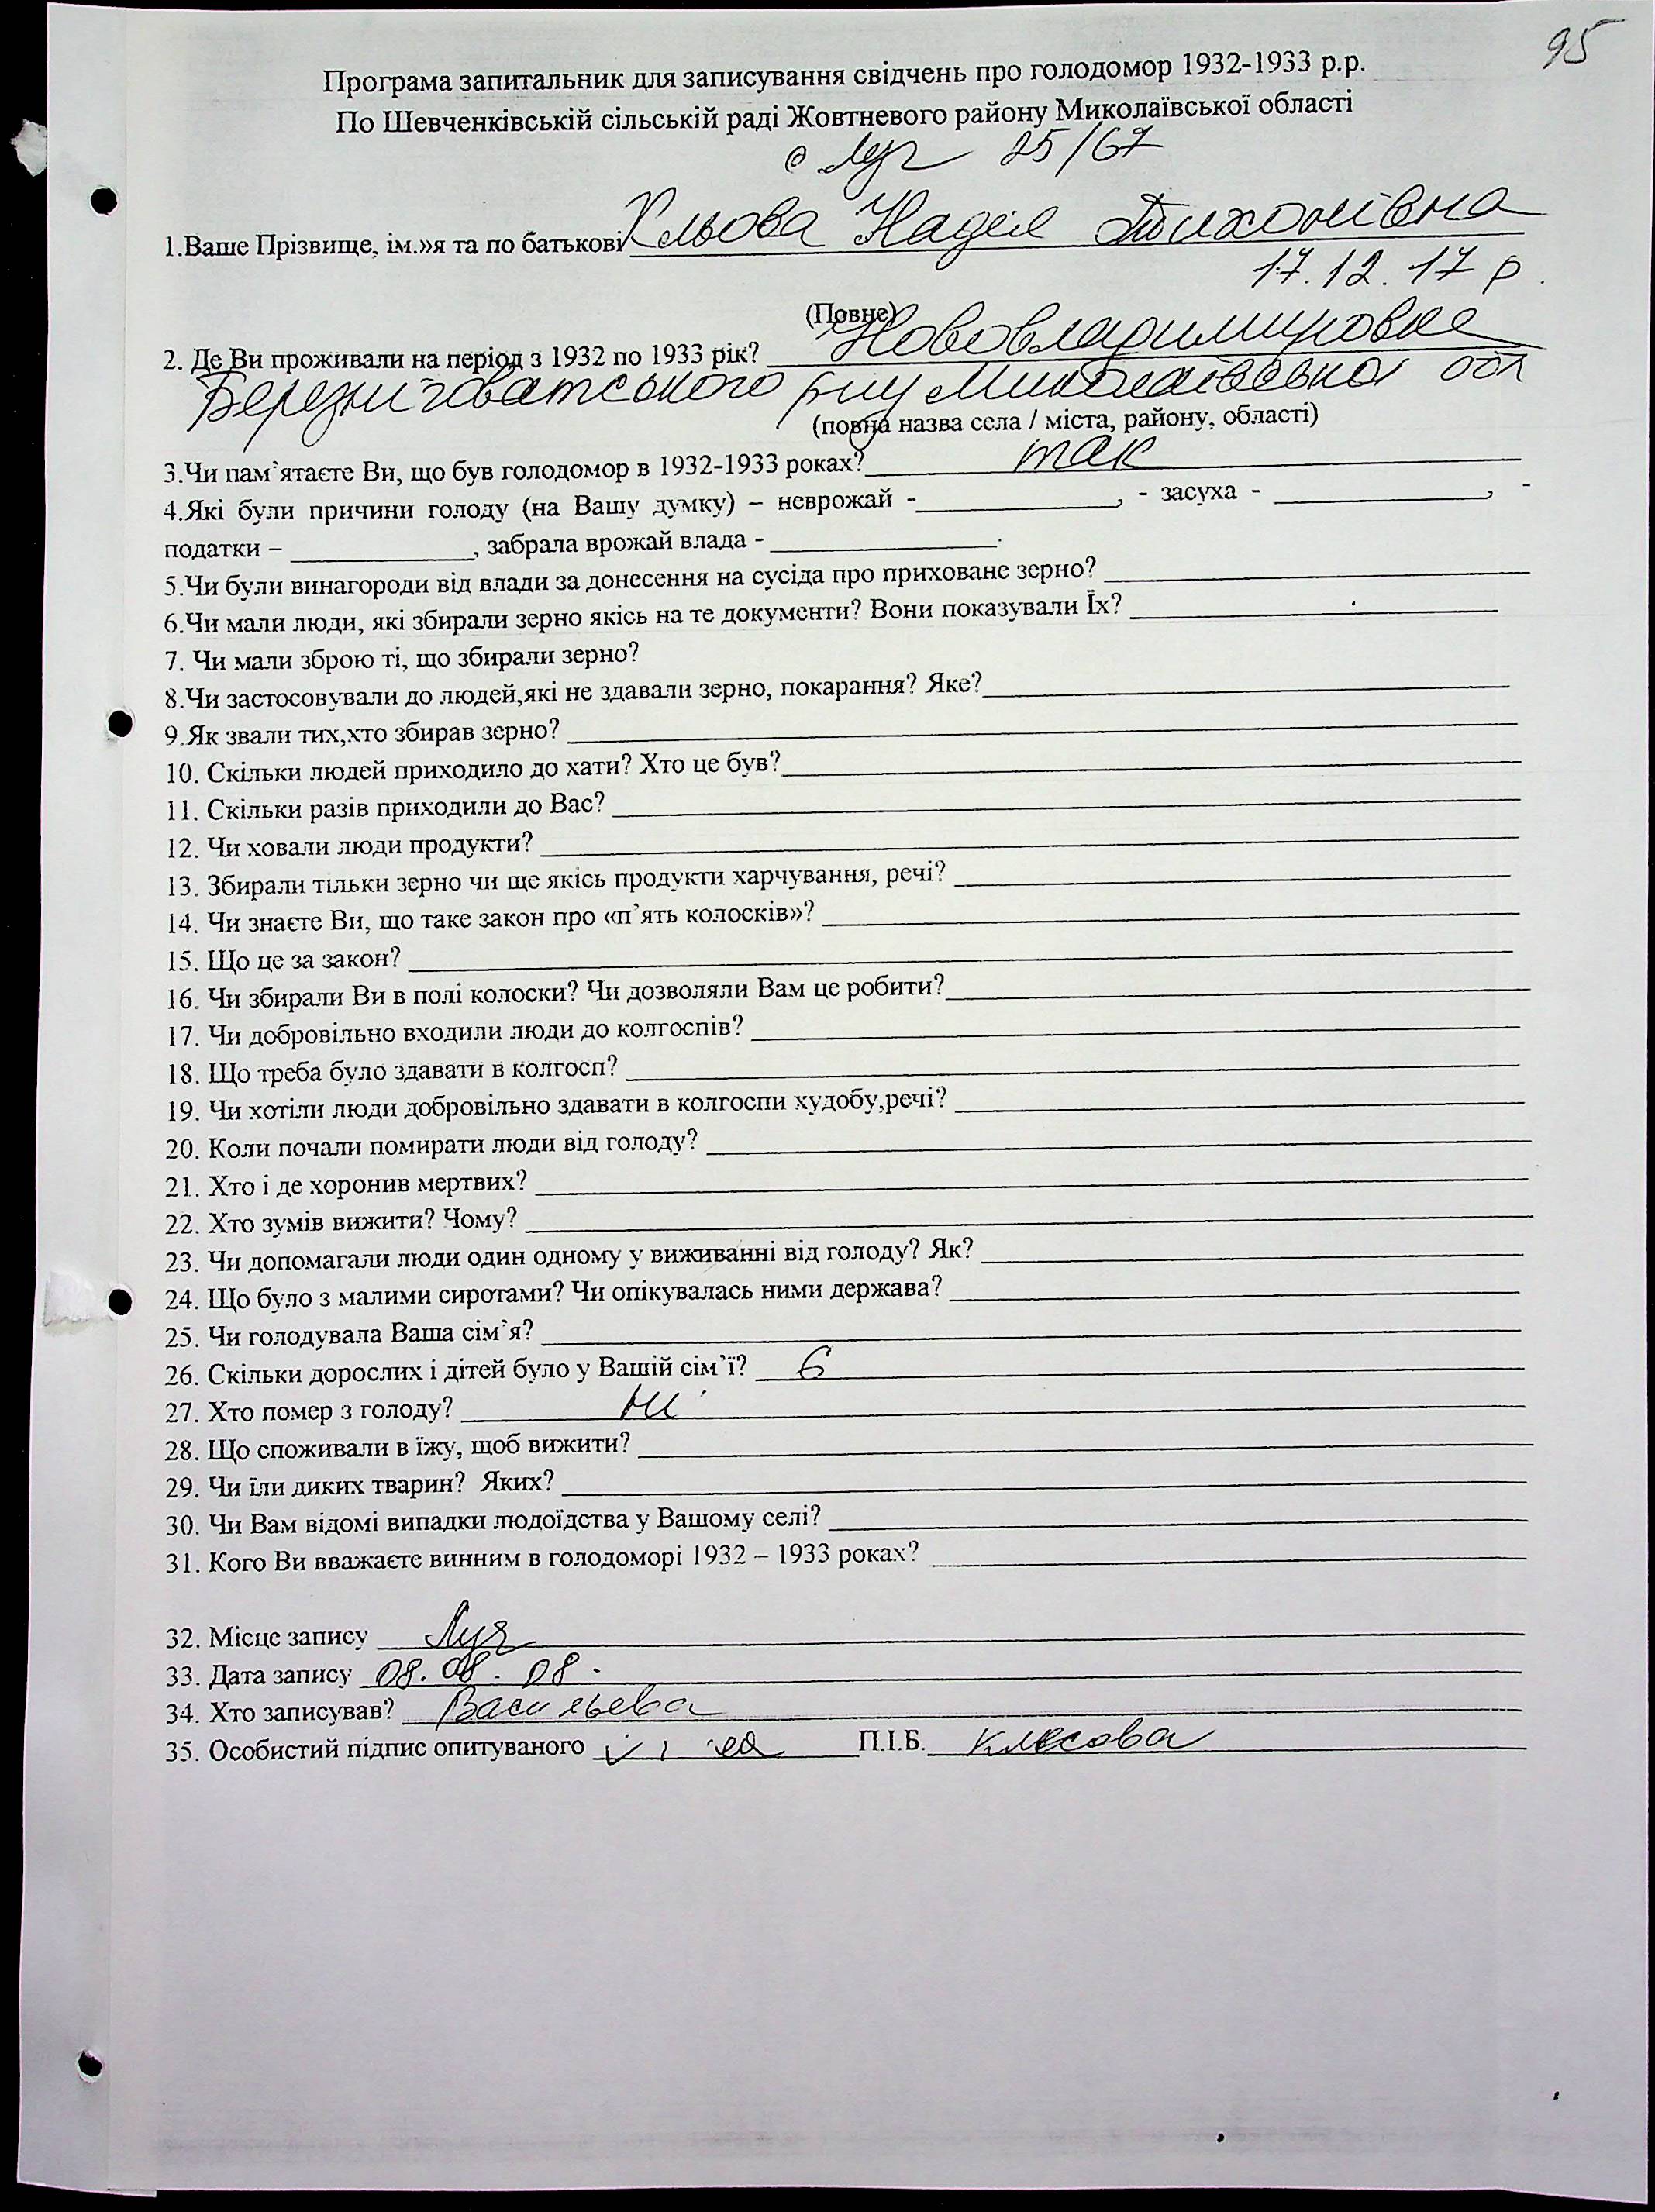 95
Програма запитальник для записування свідчень про голодомор 1932-1933 р.р.
По Шевченківській сільській раді Жовтневого району Миколаївської області
с Луч 25/67
1.Ваше Прізвище, ім.»я та по батькові Надія Тихонівна
17.12.17 р.
(Повне)
2. Де Ви проживали на період з 1932 по 1933 рік? Нововладимировка
Березниговатського р-ну Миколаївської обл
(повна назва села / міста, району, області)
3.Чи пам’ятаєте Ви, що був голодомор в 1932-1933 роках? так
4.Які були причини голоду (на Вашу думку) – неврожай -____________, - засуха - ____________, -
податки – ____________, забрала врожай влада - ____________.
5.Чи були винагороди від влади за донесення на сусіда про приховане зерно?
6.Чи мали люди, які збирали зерно якісь на те документи? Вони показували Їх?
7. Чи мали зброю ті, що збирали зерно?
8.Чи застосовували до людей,які не здавали зерно, покарання? Яке?
9.Як звали тих,хто збирав зерно?
10. Скільки людей приходило до хати? Хто це був?
11. Скільки разів приходили до Вас?
12. Чи ховали люди продукти?
13. Збирали тільки зерно чи ще якісь продукти харчування, речі?
14. Чи знаєте Ви, що таке закон про «п’ять колосків»?
15. Що це за закон?
16. Чи збирали Ви в полі колоски? Чи дозволяли Вам це робити?
17. Чи добровільно входили люди до колгоспів?
18. Що треба було здавати в колгосп?
19. Чи хотіли люди добровільно здавати в колгоспи худобу,речі?
20. Коли почали помирати люди від голоду?
21. Хто і де хоронив мертвих?
22. Хто зумів вижити? Чому?
23. Чи допомагали люди один одному у виживанні від голоду? Як?
24. Що було з малими сиротами? Чи опікувалась ними держава?
25. Чи голодувала Ваша сім’я?
26. Скільки дорослих і дітей було у Вашій сім’ї? 6
27. Хто помер з голоду? ні
28. Що споживали в їжу, щоб вижити?
29. Чи їли диких тварин? Яких?
30. Чи Вам відомі випадки людоїдства у Вашому селі?
31. Кого Ви вважаєте винним в голодоморі 1932 – 1933 роках?
32. Місце запису Луч
33. Дата запису 08.08.08.
34. Хто записував? Васильева
35. Особистий підпис опитуваного П.І.Б.